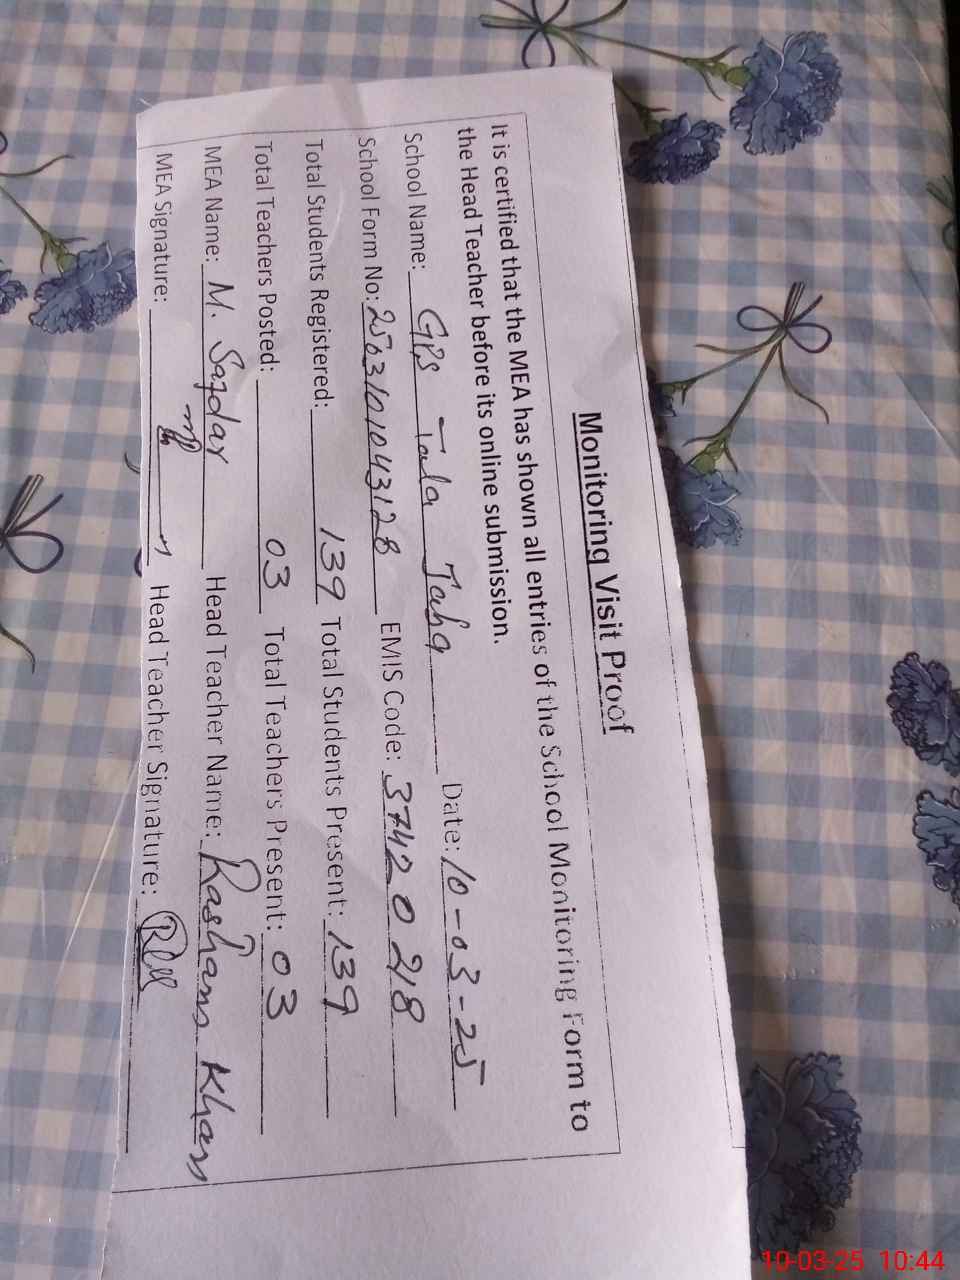 Monitoring Visit Proof
It is certified that the MEA has shown all entries of the School Monitoring Form to
the Head Teacher before its online submission.
School Name: GPS Tala Taha Date: 10-03-25
School Form No: 2503101043128 EMIS Code: 37420218
Total Students Registered: 139 Total Students Present: 139
Total Teachers Posted: 03 Total Teachers Present: 03
MEA Name: M. Sazdar Head Teacher Name: Khan
MEA Signature: Head Teacher Signature:
10-03-25 10:44